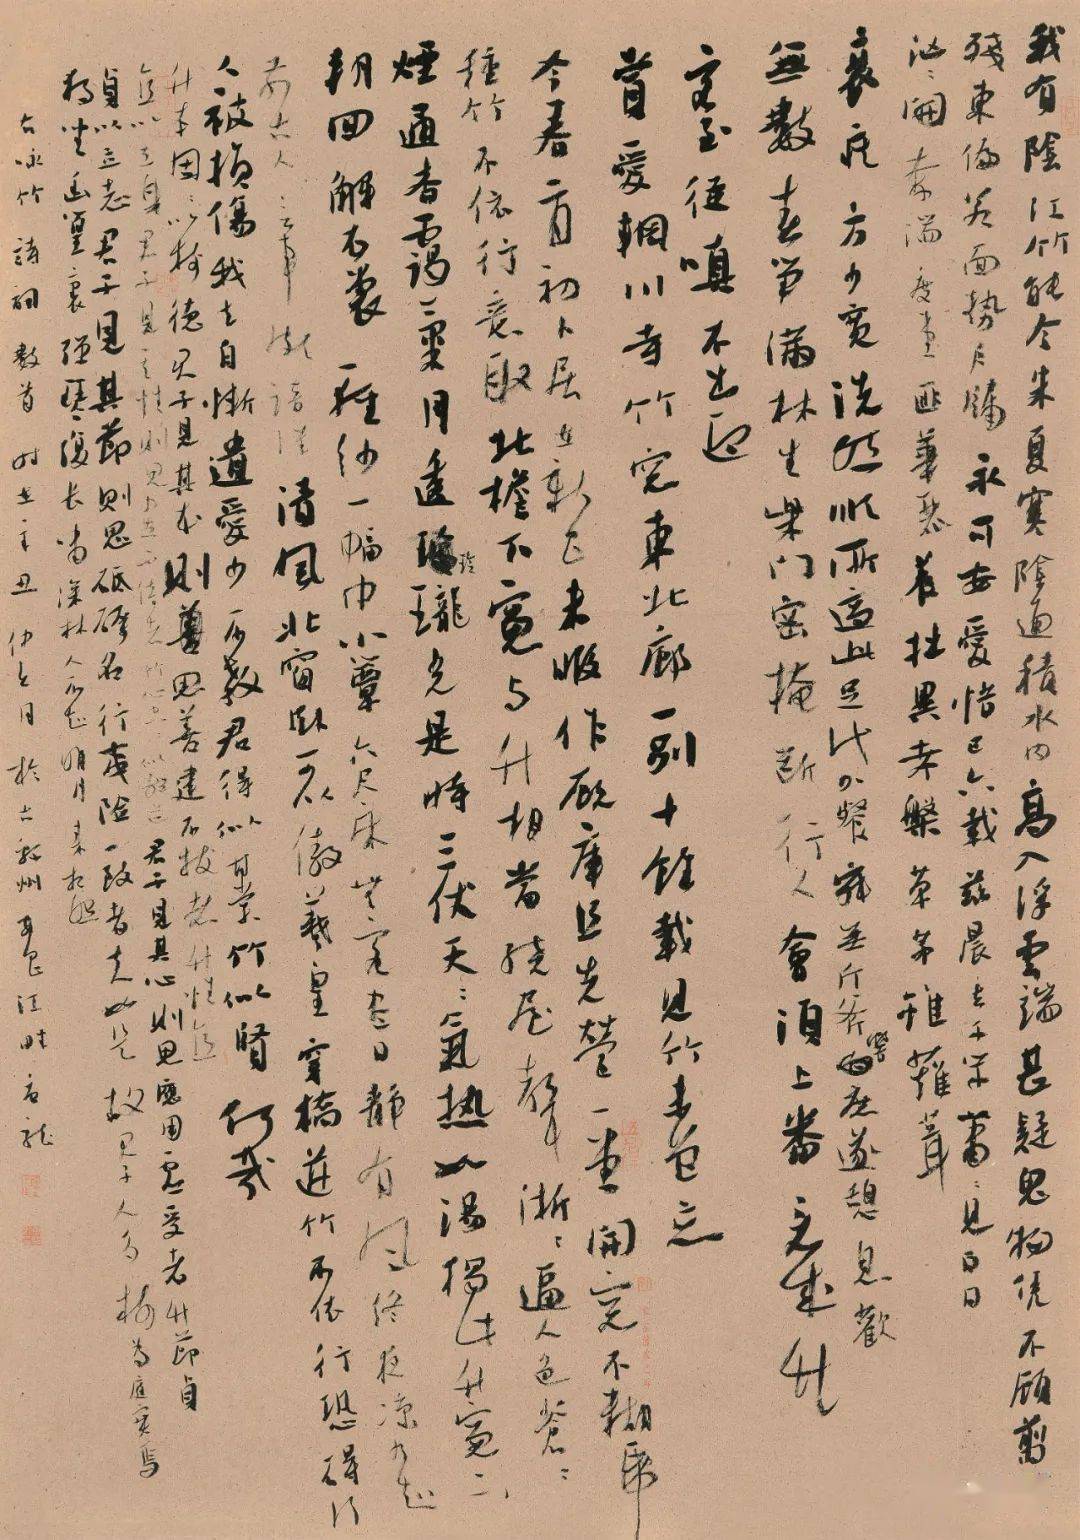 我有陰江竹能令朱夏寒陰通積水内高入浮雲端甚疑鬼物憑不顧剪
殘東偏若面勢戶牖永可安愛惜已六載茲晨去千竿蕭〻見白日
洶〻開奔湍度堂匪華麗養拙異考槃草茅雖薙葺
衰疾方少寬洗然順所適此足代加餐寂無斤斧響庶遂憩息歡
無數春笋滿林生柴門密掩斷行人會須上番看成竹
客至從嗔不出迎
昔愛輞川寺竹窗東北廊一別十餘載見竹未曾忘
今春二月初卜居在新昌未暇作廄庫且先營一堂開窗不糊紙
種竹不依行意取北檐下窗與竹相當繞屋聲淅〻逼人色蒼〻
煙通杳靄氣月透玲瓏光是時三伏天〻氣熱如湯獨此竹窗下
朝回解衣裳一輕紗一幅巾小簟六尺床無客盡日靜有風終夜涼乃知
前古人言事頗諳詳清風北窗臥可以傲羲皇穿橋莊竹不依行恐礙行
人被損傷我去自慚遺愛少不教君得似甘棠竹似賢何哉
竹本固〻以樹德君子見其本則思善建不拔者竹性直
直以立身君子見其性則思中立不倚者竹心空〻以體道君子見其心則思應用虛受者竹節貞
貞以立志君子見其節則思砥礪名行夷險一致者夫如是故君子人多樹為庭實焉
獨坐幽篁裏彈琴復長嘯深林人不知明月來相照
右咏竹詩詞數首時在辛丑仲冬月於古州江畔龍